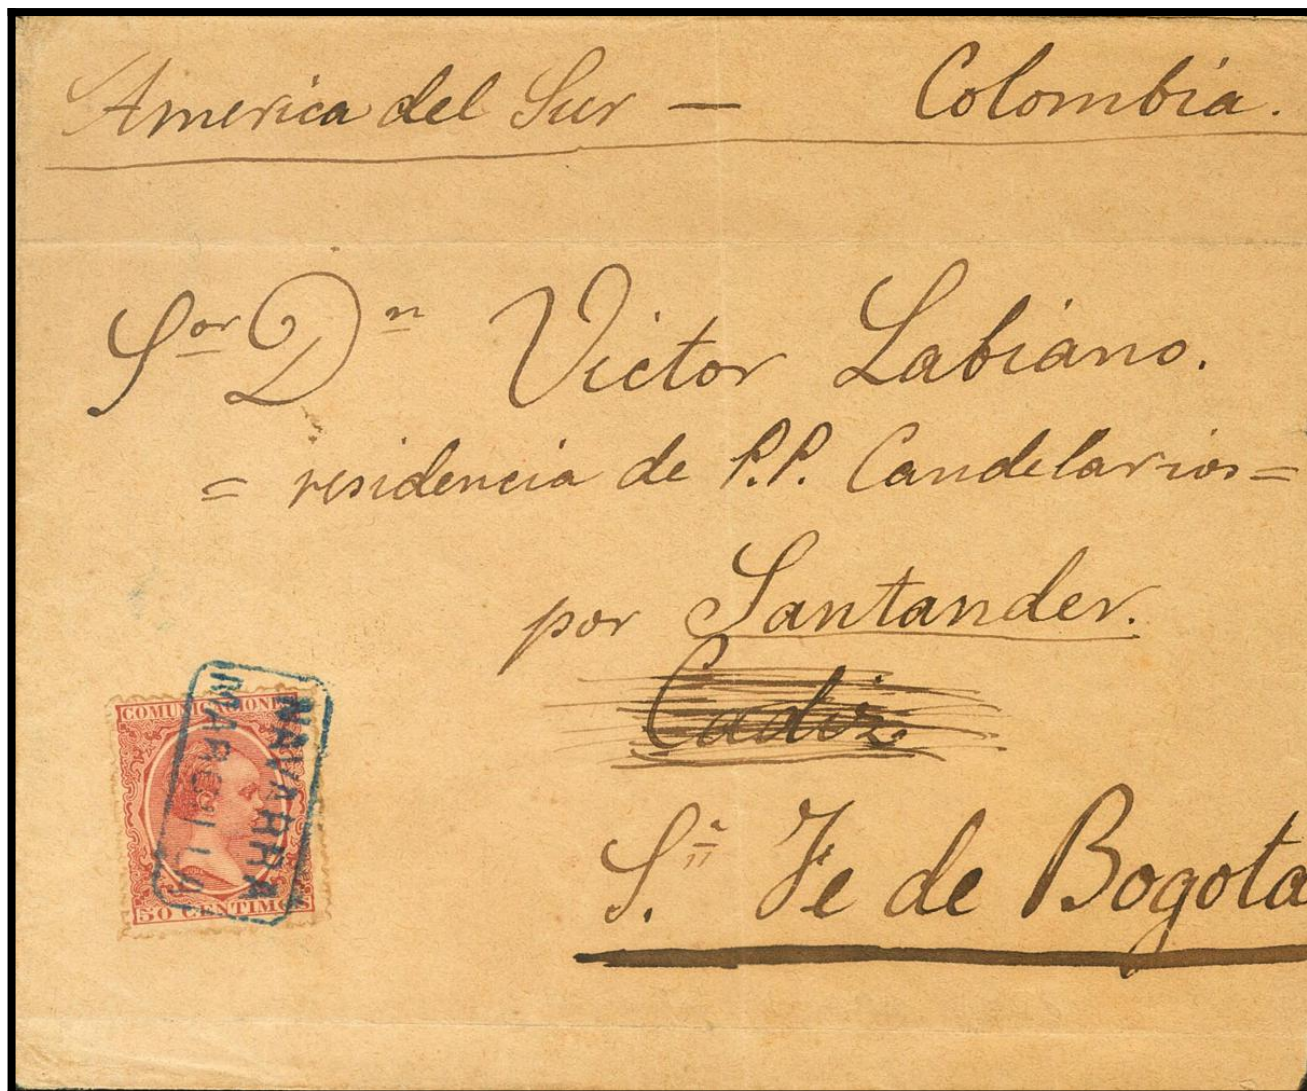 America del Sur — Colombia.
Sor Dn Victor Labiano.
= residencia de P.P. Candelarios =
por Santander.
Cadiz
S.ª Fe de Bogota
COMUNICACIONES
NAVARRA
MARCILLA
50 CENTIMOS